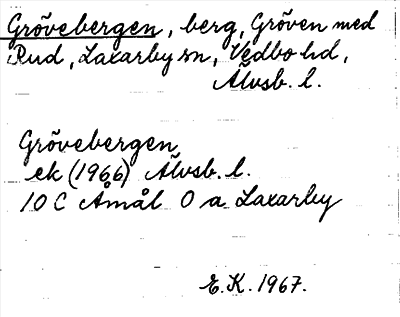 Grövebergen, berg, Gröven med
Rud, Laxarby sn, Vedbo hd,
Älvsb. l.
Grövebergen
ek (1966) Älvsb. l.
10 C Åmål O a Laxarby
E.K. 1967.